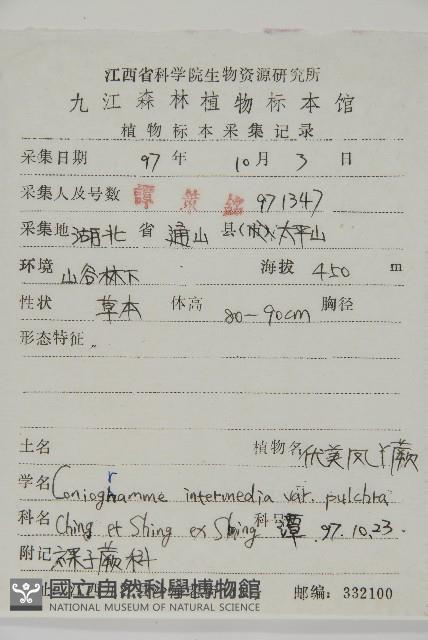 江西省科学院生物资源研究所
九江森林植物标本馆
植物标本采集记录
采集日期 97 年 10 月 3 日
采集人及号数 譚策銘 971347
采集地 湖北 省 通山 县(市) 太平山
环境 山谷林下 海拔 450 m
性状 草本 体高 80-90cm 胸径
形态特征
土名 植物名 优美凤丫蕨
学名 Coniogramme intermedia var. pulchra
科名 Ching et Shing ex Shing 科号 譚. 97.10.23.
附记 裸子蕨科
邮编: 332100
國立自然科學博物館
NATIONAL MUSEUM OF NATURAL SCIENCE